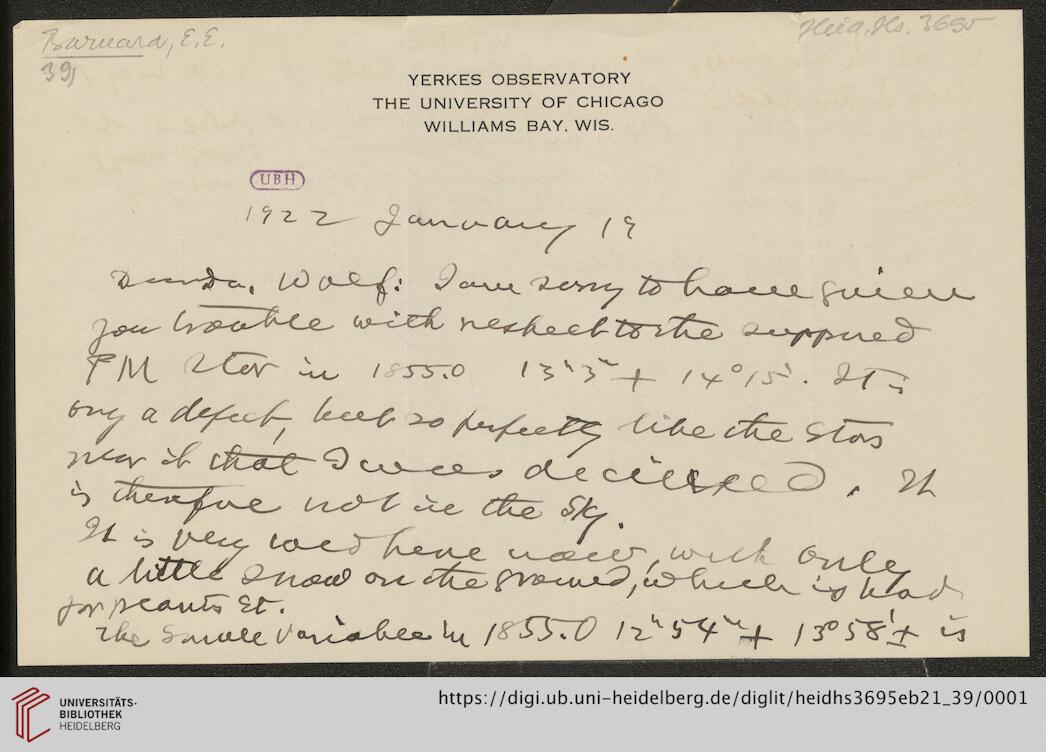 Barnard, E. E.
39,
Heid. Hs. 3695
YERKES OBSERVATORY
THE UNIVERSITY OF CHICAGO
WILLIAMS BAY, WIS.
UBH
1922 January 19
Dear Dr. Wolf: I am sorry to have given
you trouble with respect to the supposed
PM star in 1855.0 13h 3m ± 14° 15'. It is
only a defect, but so perfectly like the stars
near it that I was deceived. It
is therefore not in the sky.
It is very cold here now, with only
a little snow on the ground, which is bad
for plants Et.
The small variable in 1855.0 12h 54m ± 13° 58' ± is
UNIVERSITÄTS-
BIBLIOTHEK
HEIDELBERG
https://digi.ub.uni-heidelberg.de/diglit/heidhs3695eb21_39/0001